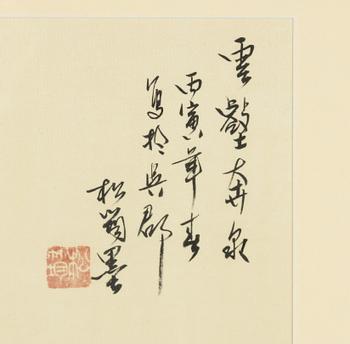 雲壑奔泉
丙寅年春
寫於吳郡
松簡墨